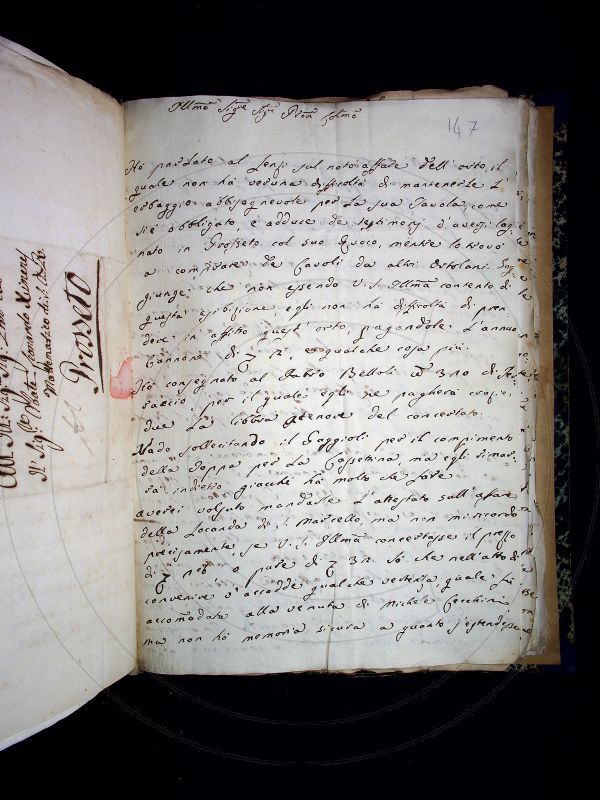 Illmo Sigre Sigre Pron Colmo
147
Ho parlato al Lenzi sul noto affare dell'orto, il
quale non ha veruna difficoltà di mantenerle l'
erbaggio abbisognevole per la sua Tavola, come
si è obbligato, e adduce de testimonj d'avergli
in Grosseto col suo Cuoco, mentre lo trovò
a comprare de Cavoli da altri Ortolani.
giunge, che non essendo V. S. Illma contento di
questa esibizione, egli non ha difficoltà di pren
dere in affitto quest'orto, pagandole l'annuo
Cannone di e qualche cosa più.
Ho consegnato al Fabio Belloli
per il quale egli ne pagherà crazie
due la libbra a tenore del concertato.
Vado sollecitando il Faggioli per il compimento
della Toppa per la Cassettina ma egli ri man
da indietro giacchè ha molto che fare.
Averei voluto mandarle l'attestato sull'affare
della Locanda di S. Marcello, ma non mi ricordo
precisamente se V. S. Illma concertasse il prezzo
di o pure di So che nell'atto di
convenire v'accadde qualche vertenza, quale fù
accomodata alla venuta di Michele Cecchini,
ma non ho memoria sicura a quanto s'estendesse
Al Sigre Abate Leonardo Ximenes
Mattematico di S. M. C.
Grosseto